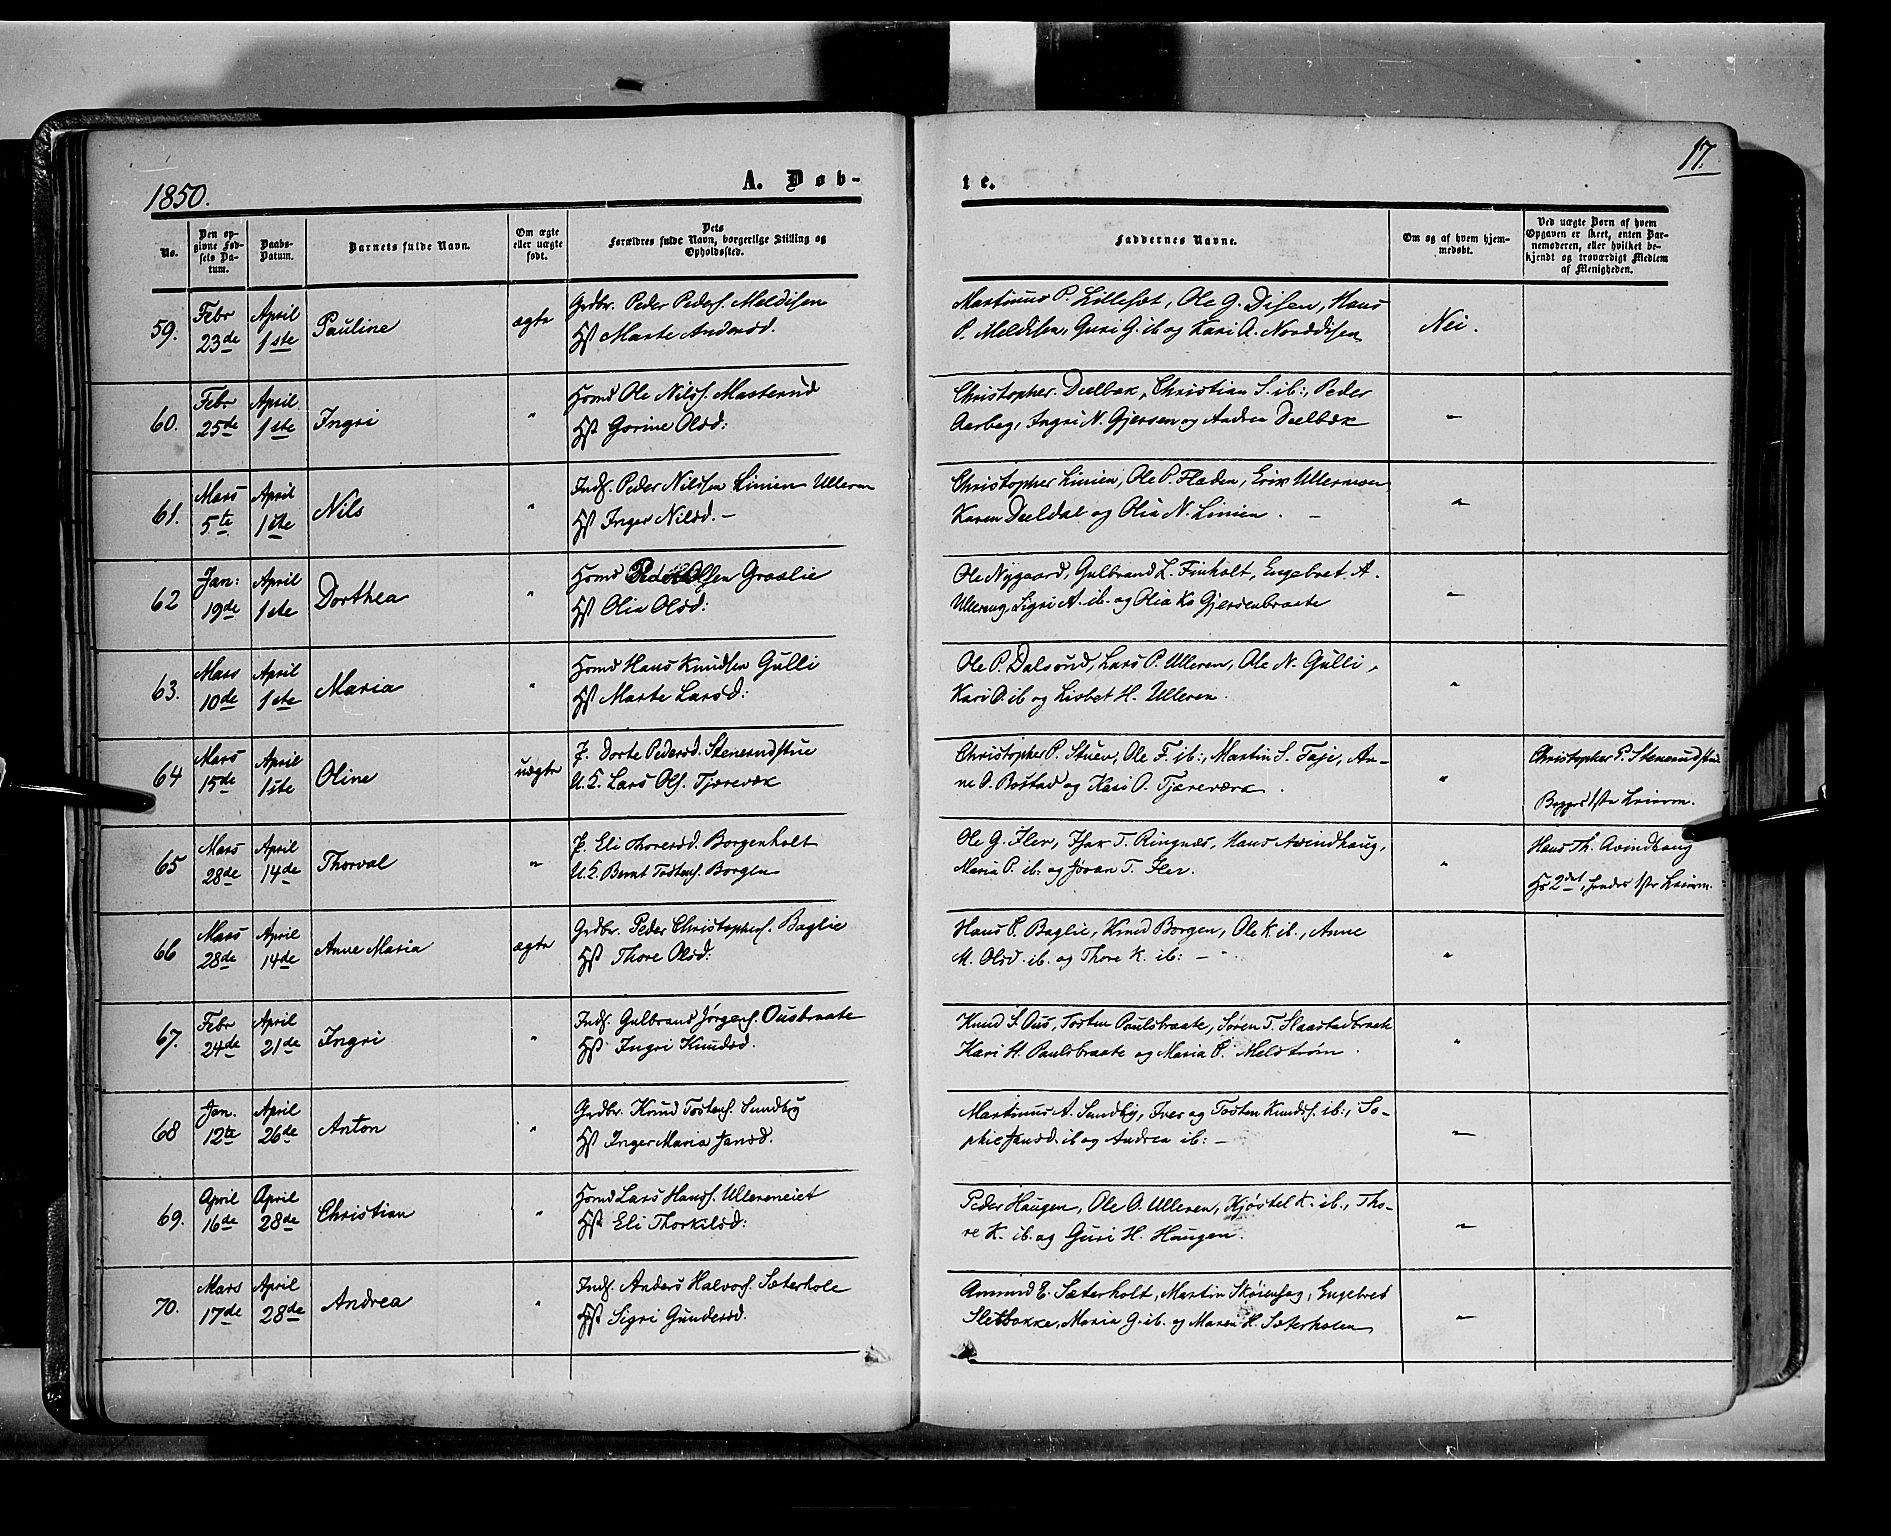 17.
1850.
A. Døb-
te.
No.
Den op-
givne Fød-
sels Da-
tum.
Daabs-
Datum.
Barnets fulde Navn.
Om ægte
eller uægte
født.
Dets
Forældres fulde Navn, borgerlige Stilling og
Opholdssted.
Faddernes Navne.
Om og af hvem hjem-
medøbt.
Ved uægte Børn af hvem
Opgaven er skeet, enten Bar-
nemoderen, eller hvilket be-
kjendt og troværdigt Medlem
af Menigheden.
59.
Febr
23de
April
1ste
Pauline
ægte
Grdbr. Peder Peders. Meldisen
Hst Marte Andersd.
Martinus P. Lillesæt, Ole G. Disen, Hans
P. Meldisen, Guri G. ib og Kari A. Norddisen
Nei.
60.
Febr
25de
April
1ste
Ingri
"
Hsmd Ole Nils. Masterud
Hst Gorine Olsd:
Christopher Dælbæk, Christian S. ib:, Peder
Aasbøg, Ingri N. Gjersøen og Andrea Dælbæk
"
61.
Mars
5te
April
1ste
Nils
"
Inds. Peder Nilssen Linien Ulleren
Hst Inger Nilsd. -
Christopher Linien, Ole P. Flæden, Erik Ullernsen
Karen Dældal og Olia N. Linien. -
"
62
Jan:
19de
April
1ste
Dorthea
"
Hsmd Peder Olsen Graslie
Hst Olia Olsd:
Ole Nygaard, Gulbrand L. Finholt, Engebret A.
Ullereng, Sigri A. ib. og Olia K. Gjersøenbraate
"
63.
Mars
10de
April
1ste
Maria
"
Hsmd Hans Knudsen Gulli
Hst Marte Larsd:
Ole P. Dalsrud, Lars P. Ulleren, Ole N. Gulli,
Kari O. ib og Lisbet H. Ulleren.
"
64
Mars
15de
April
1ste
Oline
uægte
P. Dorte Pedersd. Stenerudstue
U. K. Lars Ols. Tjæreværk
Christopher P. Stuen, Ole F. ib:, Martin S. Foje, An-
ne O. Bostad og Kari O. Tjæreværk.
"
Christopher P. Stenerudstue
Begges 1ste Leierm.
65
Mars
28de
April
14de
Thorval
"
P. Eli Thoresd. Borgenholt
U. K. Bernt Tostens. Borgen
Ole G. Fler, Isak T. Ringnæs, Hans Avindhaug,
Maria P. ib: og Jøran T. Fler.
"
Hans Th. Avindhaug
Hs 2det, hendes 1ste Leierm.
66
Mars
28de
April
14de
Anne Maria
ægte
Grdbr. Peder Christophers. Baglie
Hst Thore Olsd:
Hans P. Baglie, Knud Borgen, Ole K. ib., Anne
M. Olsd. ib. og Thore K. ib: -
"
67.
Febr
24de
April
21de
Ingri
"
Inds. Gulbrand Jørgens. Ousbraate
Hst Ingri Knudsd.
Knud S. Ous, Tosten Paulsbraate, Søren T. Slaastadbraate
Kari H. Paulsbraate og Maria P. Melstrøm.
"
68
Jan.
12te
April
26de
Anton
"
Grdbr. Knud Tostens. Sundby
Hst Inger Maria Jansd.
Martinus A. Sundby, Iver og Tosten Knuds. ib., So-
phie Jansd. ib og Andrea ib: -
"
69.
April
16de
April
28de
Christian
"
Hsmd Lars Hans. Ullereneiet
Hst Eli Thorkilsd:
Peder Haugen, Ole O. Ulleren, Kjøstel K. ib., Tho-
re K. ib. og Guri H. Haugen.
"
70.
Mars
17de
April
28de
Andrea
"
Inds. Anders Halvors. Sæterhole
Hst Sigri Gundersd.
Amund E. Sæterholt, Martin Skørenhag, Engebred
Sletbakke, Maria G. ib. og Maren H. Sæterholen
"